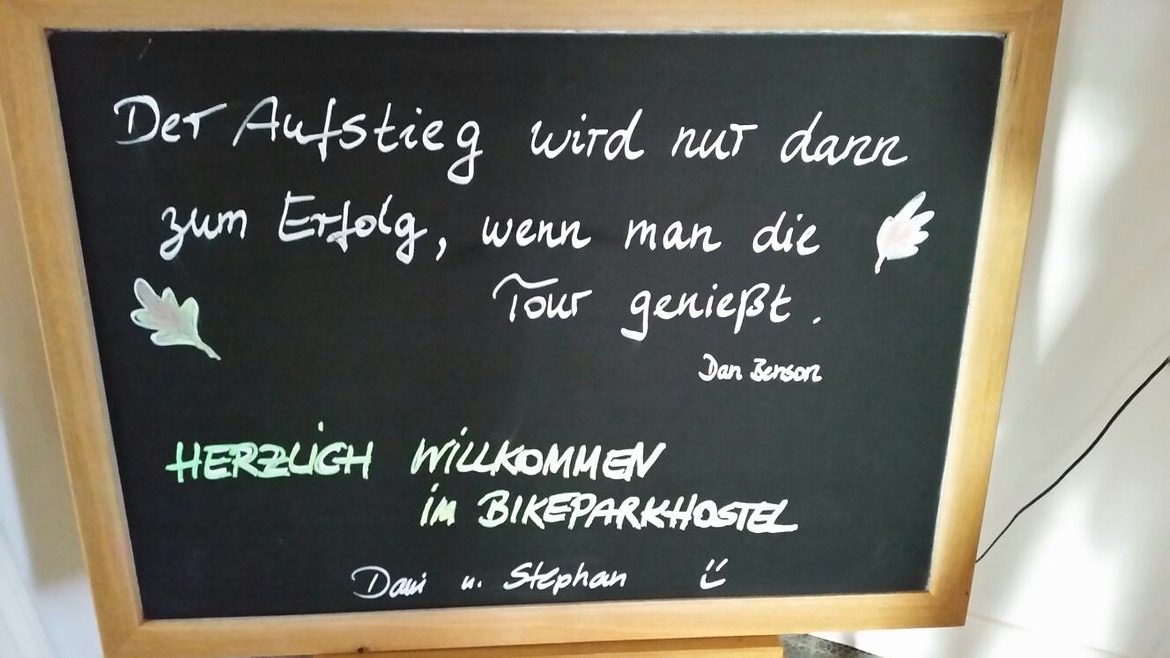 Der Aufstieg wird nur dann
zum Erfolg, wenn man die
Tour genießt.
Dan Benson
HERZLiCH WiLLKOMMEN
im BIKEPARKHOSTEL
Dani u. Stephan